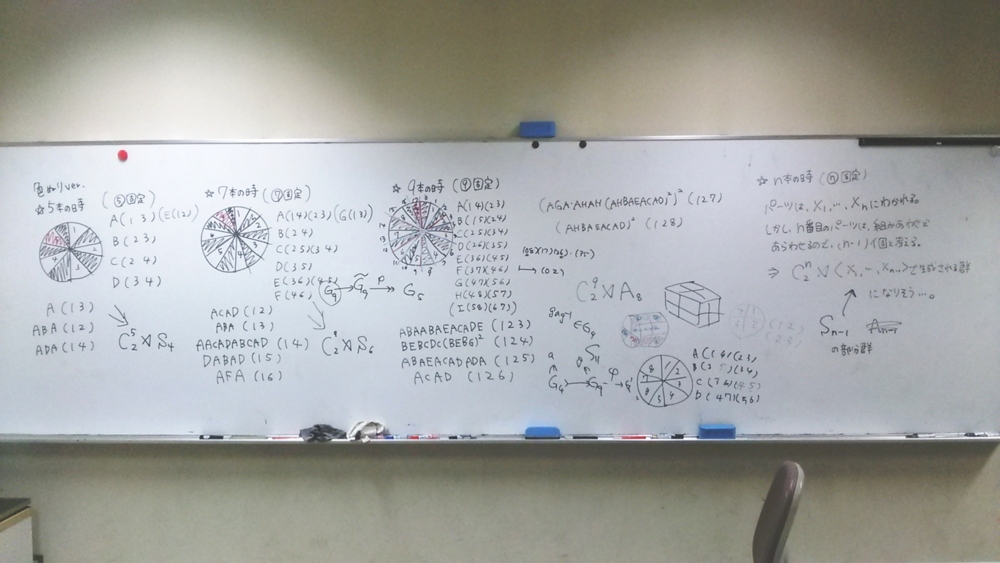 色ぬりver.
☆5本の時 (⑤固定)
A(13)(E(12))
B(23)
C(24)
D(34)
A(13)
ABA(12)
ADA(14)
C₂⁵⋊S₄
☆7本の時 (⑦固定)
A(14)(23)(G(13))
B(24)
C(25)(34)
D(35)
E(36)(45)
F(46)
ACAD(12)
ABA(13)
AACADABCAD(14)
DABAD(15)
AFA(16)
☆9本の時 (⑨固定)
A(14)(23)
B(15)(24)
C(25)(34)
D(26)(35)
E(36)(45)
F(37)(46)
G(47)(56)
H(48)(57)
(I(58)(67))
ABAABAEACADE(123)
BEBCDC(BEBG)²(124)
ABAEACADADA(125)
ACAD(126)
(AGA·AHAH(AHBAEACAD)²)²(127)
(AHBAEACAD)²(128)
C₂⁹⋊A₈
gag⁻¹∈G₉
A(14)(23)
D(47)(56)
☆n本の時 (ⓝ固定)
パーツは、X₁,…,Xₙにわかれる
しかし、n番目のパーツは、組かあわせで
あらわせるので、(n-1)個と考える。
⇒ C₂ⁿ⋊<X₁,…,Xₙ₋₁>で生成される群
になりそう…。
Sₙ₋₁
の部分群